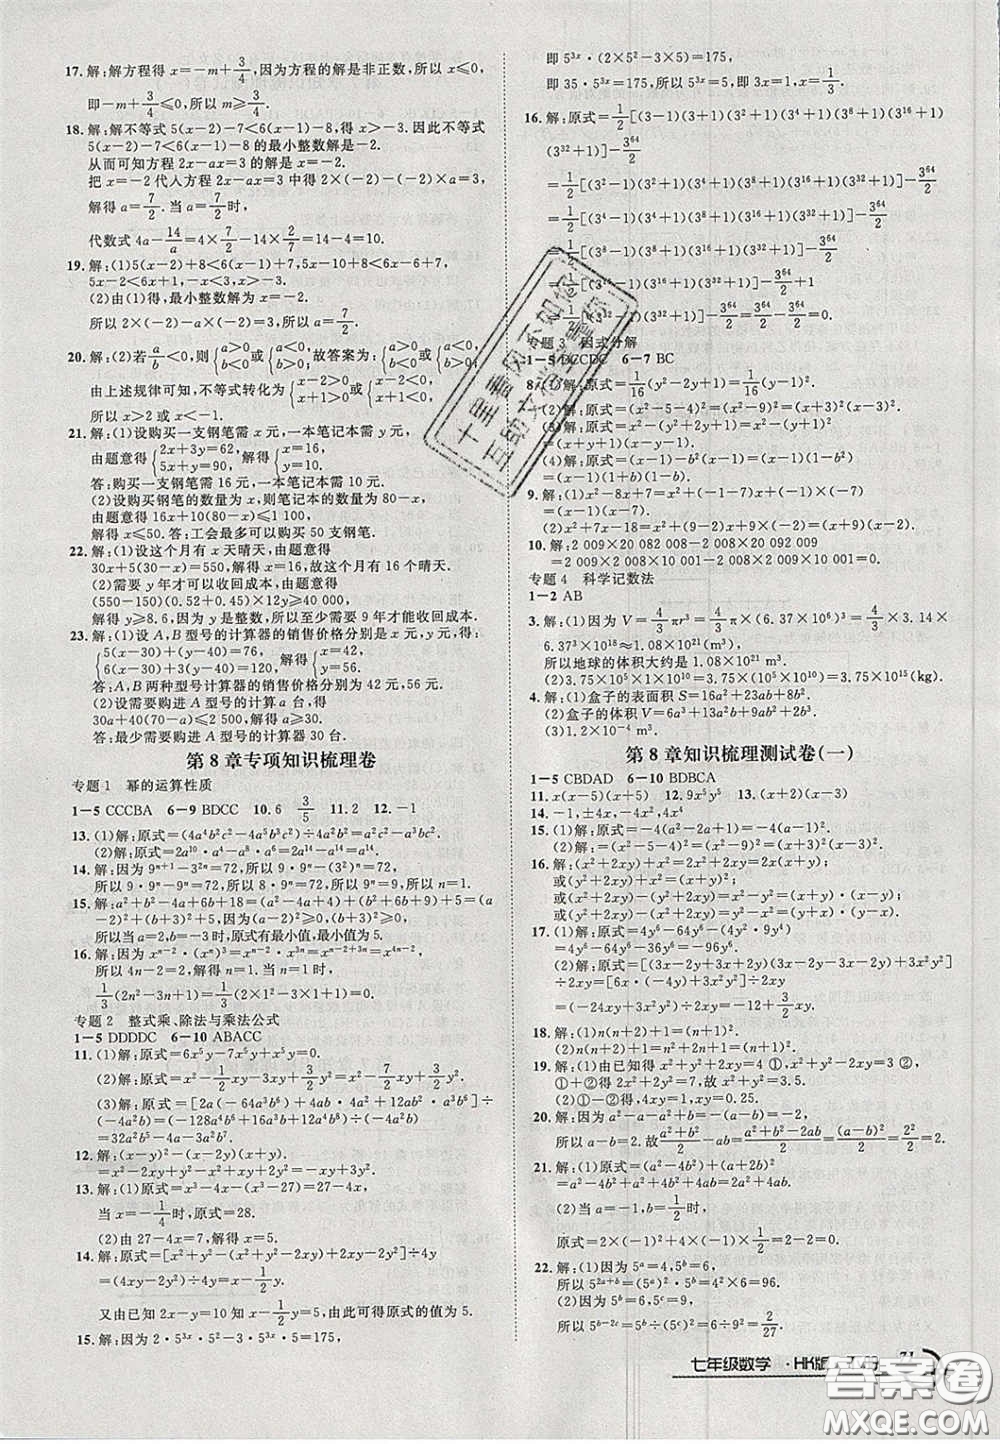 17.解:解方程得 x=-m+3/4,因为方程的解是非正数,所以 x≤0,
即-m+3/4≤0,所以 m≥3/4.
18.解:解不等式 5(x-2)-7<6(x-1)-8,得 x>-3.因此不等式
5(x-2)-7<6(x-1)-8 的最小整数解是-2.
从而可知方程 2x-ax=3 的解是-2.
把 x=-2 代人方程 2x-ax=3 中得 2×(-2)-(-2)×a=3,
解得 a=7/2.当 a=7/2时,
代数式 4a-14/a=4×7/2-14×2/7=14-4=10.
19.解:(1)5x-10+8<6x-6+7,
5x-2<6x+1,-x<3,x>-3.
(2)由(1)得,最小整数解为 x=-2,
所以 2×(-2)-a×(-2)=3,所以 a=7/2.
20.解:(2)若a/b<0,则{a>0 b<0或{a<0 b>0;故答案为:{a>0 b<0或{a<0 b>0
由上述规律可知,不等式转化为{x-2>0 x+1>0或{x-2<0 x+1<0,
所以 x>2 或 x<-1.
21.解:(1)设购买一支钢笔需 x 元,一本笔记本需 y 元,
由题意得{2x+3y=62, 5x+y=90, 解得{x=16 y=10.
答:购买一支钢笔需 16 元,一本笔记本需 10 元.
(2)设购买钢笔的数量为 x,则笔记本的数量为 80-x,
由题意得 16x+10(80-x)≤1 100,
解得 x≤50. 答:工会最多可以购买 50 支钢笔.
22.解:(1)设这个月有 x 天晴天,由题意得
30x+5(30-x)=550,解得 x=16,故这个月有 16 个晴天.
(2)需要 y 年才可以收回成本,由题意得
(550-150)(0.52+0.45)·12y≥40 000,
解得 y≥8.6,因为 y 是整数,所以至少需要 9 年才能收回成本.
23.解:(1)设 A,B 型号的计算器的销售价格分别是 x元,y元,得:
{5(x-30)+(y-40)=76, 6(x-30)+3(y-40)=120, 解得{x=42 y=56.
答:A,B 两种型号计算器的销售价格分别为 42 元,56 元.
(2)设需要购进 A 型号的计算 a 台,得
30a+40(70-a)≤2 500,解得 a≥30.
答:最少需要购进 A 型号的计算器 30 台.
第 8 章专项知识梳理卷
专题 1 幂的运算性质
1-5 CCCBA 6-9 BDCC 10.6 3/5 11.2 12.-1
13.(1)解:原式=(4a⁴b²c²-4a⁵b³c²)÷4a²b²=a²c²-a³bc².
(2)解:原式=2a¹⁰·a⁴-a⁸·a⁶=2a¹⁴-a¹⁴=a¹⁴.
14.解:因为 9ⁿ⁺¹-3²ⁿ=72,所以 9ⁿ·9-(3²)ⁿ=72,
所以 9·9ⁿ-9ⁿ=72,所以 8·9ⁿ=72,所以 9ⁿ=9,所以 n=1.
15.解:a²+b²-4a+6b+18=(a²-4a+4)+(b²+6b+9)+5=(a
-2)²+(b+3)²+5,因为(a-2)²≥0,(b+3)²≥0,
所以当 a=2,b=-3 时,原式有最小值,最小值为 5.
16.解:因为 xⁿ⁻²·(xⁿ)³=xⁿ⁻²·x³ⁿ=xⁿ⁻²⁺³ⁿ=x⁴ⁿ⁻²,
所以 4n-2=2,解得 n=1.当 n=1 时,
1/3(2n²-3n+1)=1/3(2×1²-3×1+1)=0.
专题 2 整式乘、除法与乘法公式
1-5 DDDDC 6-10 ABACC
11.(1)解:原式=6x⁵y-7x⁵y+x⁵y=0.
12.解:(x-y)²-(x-2y)(x+y)
=x²-2xy+y²-x²+xy+2y²=-xy+3y².
13.解:(1)原式=x³-4x-x³+x+3x²-3x²+27=-3x+27,
(2)由 27-4x=7,解得 x=5.
14.解:原式=[x²+y²-(x²-2xy+y²)+2xy-2y²]÷4y
=(4xy-2y²)÷4y=x-1/2y.
又由已知 2x-y=10 知 x-1/2y=5,由此可得原式的值为 5.
15.解:因为 2·5³ˣ·5²-3·5³ˣ·5=175,
即 5³ˣ·(2×5²-3×5)=175,
即 35·5³ˣ=175,所以 5³ˣ=5,即 3x=1,x=1/3.
16.解:原式=1/2[(3-1)(3+1)(3²+1)(3⁴+1)(3⁸+1)(3¹⁶+1)
(3³²+1)]-3⁶⁴/2
=1/2[(3²-1)(3²+1)(3⁴+1)(3⁸+1)(3¹⁶+1)(3³²+1)]-3⁶⁴/2
=1/2[(3⁴-1)(3⁴+1)(3⁸+1)(3¹⁶+1)(3³²+1)]-3⁶⁴/2
=1/2[(3⁸-1)(3⁸+1)(3¹⁶+1)(3³²+1)]-3⁶⁴/2
=1/2[(3¹⁶-1)(3¹⁶+1)(3³²+1)]-3⁶⁴/2
专题 3 因式分解
1-5 DCCDC 6-7 BC
9.解:(1)x²-8x+7=x²+(-1-7)x+(-1)×(-7)
=(x-1)(x-7).
(2)x²+7x-18=x²+(-2+9)x+(-2)×9=(x-2)(x+9).
10.解: 2 009×20 082 008-2 008×20 092 009
=2 009×2 008×10 001-2 008×2 009×10 001=0.
专题 4 科学记数法
1-2 AB
3.解:(1)因为 V=4/3πr³=4/3π×(6.37×10⁶)³=4/3×3.14×
6.37³×10¹⁸≈1.08×10²¹(m³)
所以地球的体积大约是 1.08×10²¹ m³.
(2)3.75×10×1×10⁵×1×10¹⁰=3.75×10¹⁵(kg).
4.解:(1)盒子的表面积 S=16a²+23ab+8b²;
(2)盒子的体积 V=6a³+17a²b+12ab²;
(3)1.2×10⁴.
第 8 章知识梳理测试卷(一)
1-5 CBDAD 6-10 BDBCA
11.x(x-5)(x+5) 12.9x⁵y⁵ 13.(x+2)(x-3)
14.-1,±4x,4x⁴
15.解:(1)原式=-4(a²-2a+1)=-4(a-1)².
(2)解:(x²-5)²+8(x²-5)+16=(x²-1)²=(x+1)²(x-1)².
16.解:(x²+2xy)+x²=2x²+2xy=2x(x+y);
或(y²+2xy)+x²=(x+y)²;
或(x²+2xy)-(y²+2xy)=x²-y²=(x+y)·(x-y);
或(y²+2xy)-(x²+2xy)=y²-x²=(y+x)·(y-x).
17.解:(1)原式=4y⁶-64y⁶-(4y²·9y⁴)
=4y⁶-64y⁶-36y⁶=-96y⁶.
18.解:(1)n(n+2)+1=(n+1)².
(2)n(n+2)+1=n²+2n+1=(n+1)².
19.解:(1)由已知得 x²+y²+2xy=4 ①,x²+y²-2xy=3 ②,
①+②得 2x²+2y²=7,故 x²+y²=3.5.
(2)①-②得,4xy=1,xy=0.25.
21.解:(1)原式=(a²-4b²)-(a²-4ab+4b²)+8b²
22.解:(1)因为 5ᵃ=4,5ᵇ=6,
所以 5²ᵃ⁺ᵇ=(5ᵃ)²·5ᵇ=4²×6=96.
(2)因为 5ᵇ=6,5ᶜ=9,
所以 5ᵇ⁻²ᶜ=5ᵇ÷(5ᶜ)²=6÷9²=2/27.
七年级数学·HK版
71
十里春风不如你
互助文档
答案圈
MXQE.COM